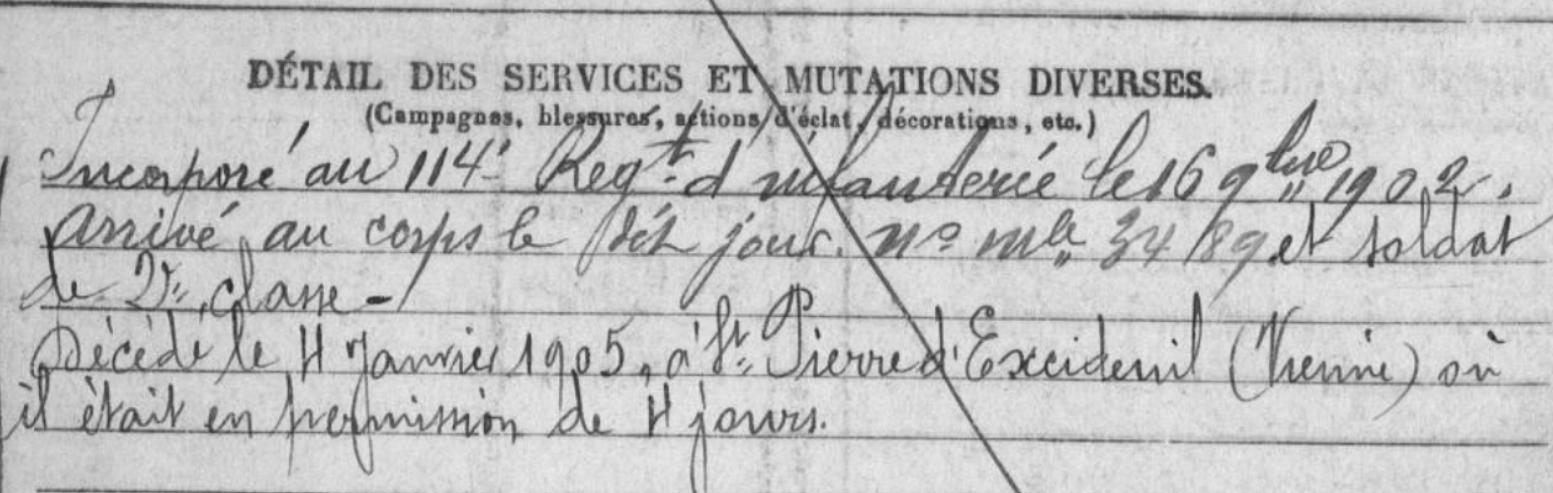 DÉTAIL DES SERVICES ET MUTATIONS DIVERSES.
(Campagnes, blessures, actions d'éclat, décorations, etc.)
Incorporé au 114e Regt d'infanterie le 16 9bre 1902.
Arrivé au corps le dit jour. No mle 3489 et soldat
de 2e classe -
Décédé le 4 Janvier 1905, à St Pierre d'Excideuil (Vienne) où
il était en permission de 4 jours.